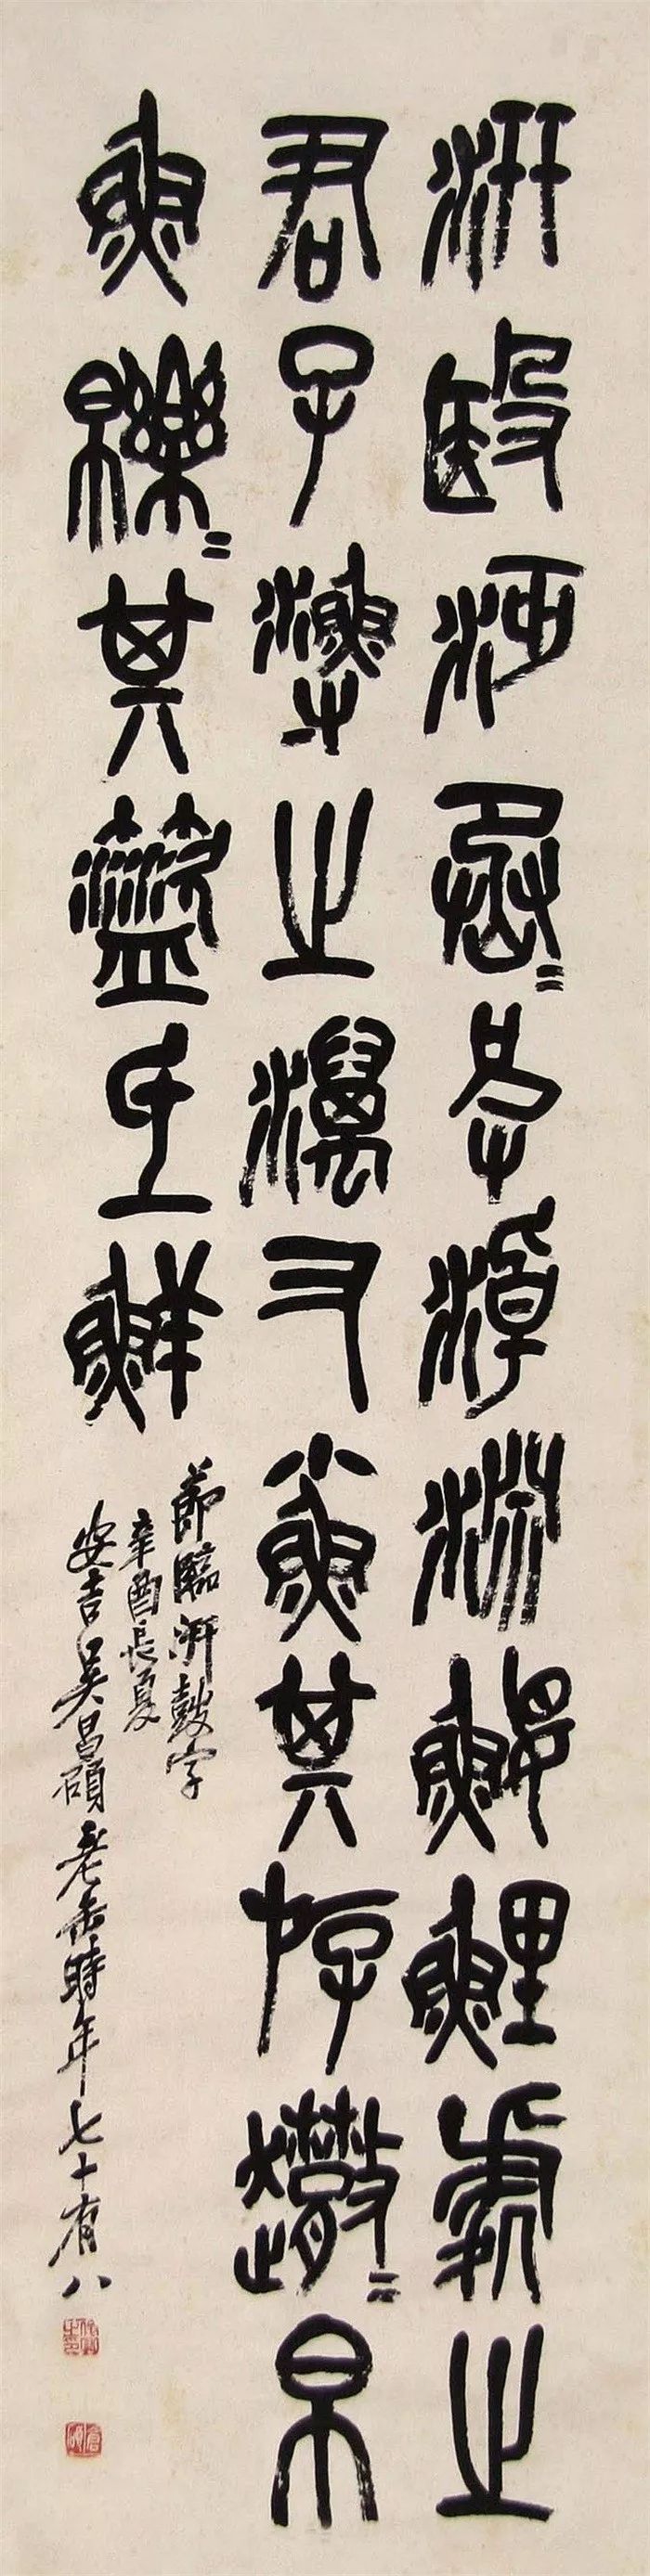 汧殹沔丞=皮淖淵鰋鯉處之
君子漁之澫又小魚其斿散=帛
魚皪=其盜氐鮮
節臨汧鼓字
辛酉長夏
安吉吳昌碩老缶時年七十有八
俊卿之印
倉碩